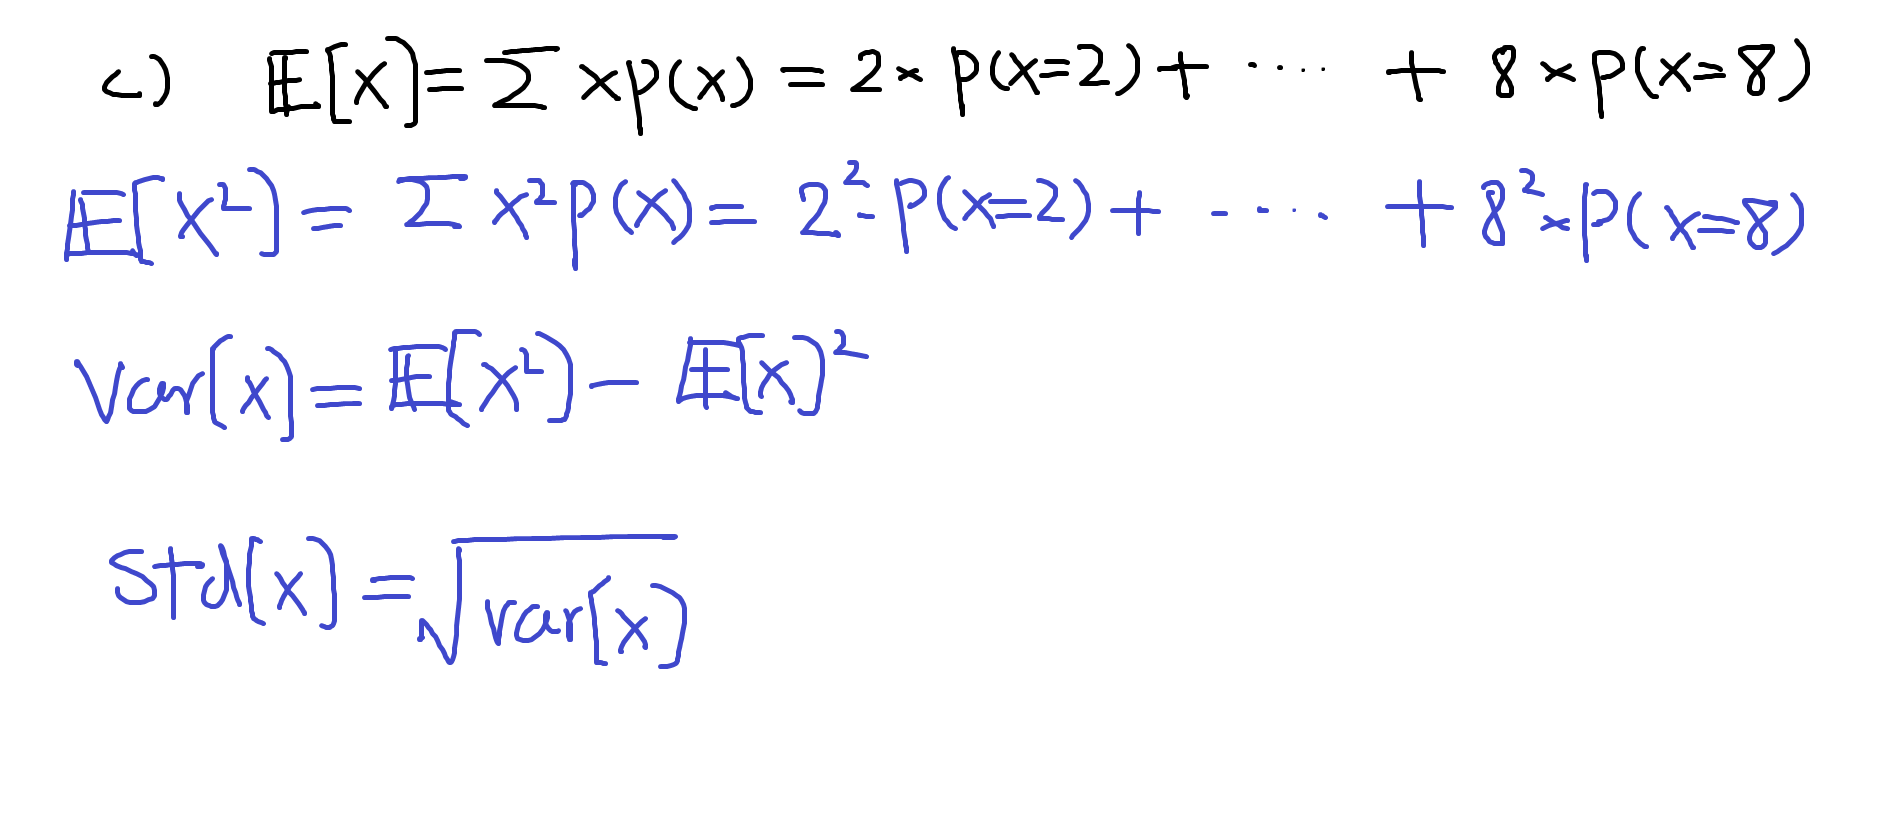 c) 𝔼[X] = Σ x p(x) = 2 × p(x=2) + ····· + 8 × p(x=8)
𝔼[X²] = Σ x² p(x) = 2² · p(x=2) + ····· + 8² × p(x=8)
Var[x] = 𝔼[X²] − 𝔼[x]²
Std[x] = √var[x]